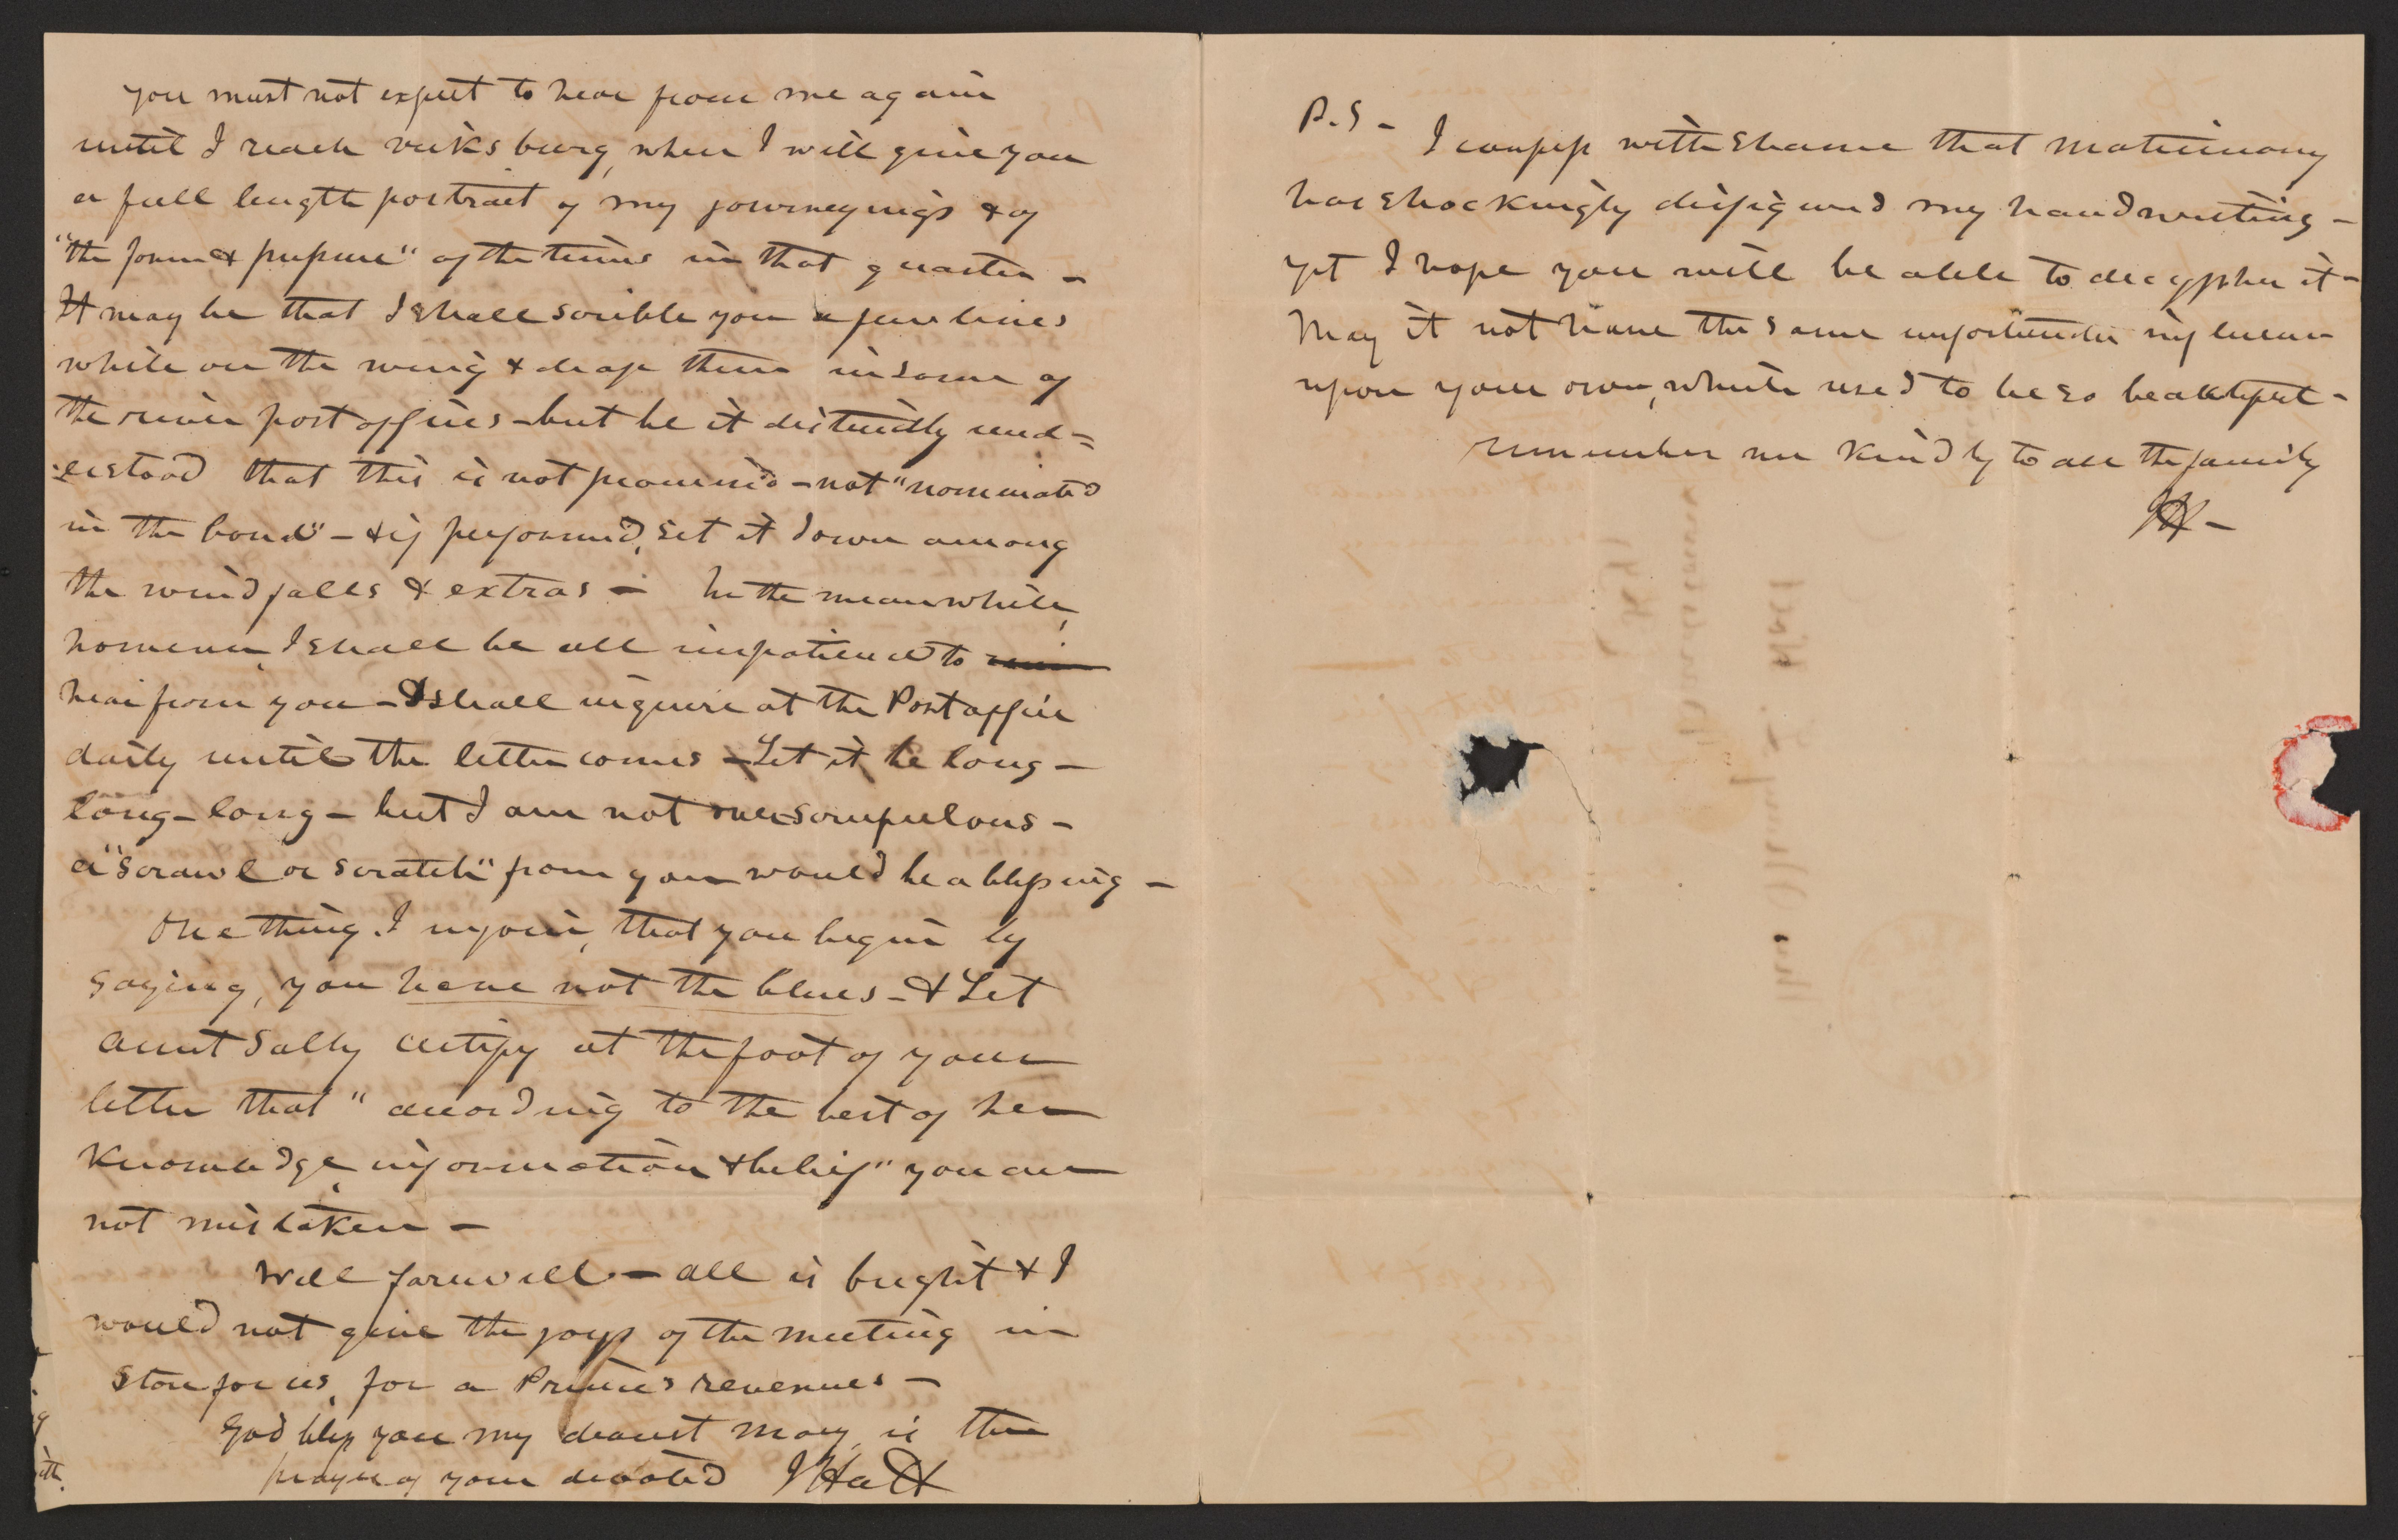 you must not expect to hear from me again
until I reach vicksburg, when I will give you
a full length portrait of my journeyings & of
"the form & pressure" of the times in that quarter –
It may be that I shall scribble you a few lines
while on the wing & drop them in some of
the river post offices – but be it distinctly und=
=erstood that this is not promised – not "nominated
in the bond" – & if performed, set it down among
the windfalls & extras – In the meanwhile,
however, I shall be all impatience to
hear from you – I shall inquire at the Post office
daily until the letter comes – Let it be long –
long – long – but I am not over scrupulous –
a "scrawl or scratch" from you would be a blessing –
One thing I enjoin, that you begin by
saying, you have not the blues – & Let
aunt Sally certify at the foot of your
letter that "according to the best of her
knowledge, information & belief" you are
not mistaken –
Well farewell – all is bright & I
would not give the joys of the meeting in
store for us, for a Prince's revenues –
God bless you my dearest Mary, is the
prayer of your devoted J Holt
P.S – I confess with shame that matrimony
has shockingly disfigured my handwriting –
yet I hope you will be able to decypher it –
May it not have the same unfortunate influence
upon your own, which used to be so beautiful –
remember me kindly to all the family
JH –